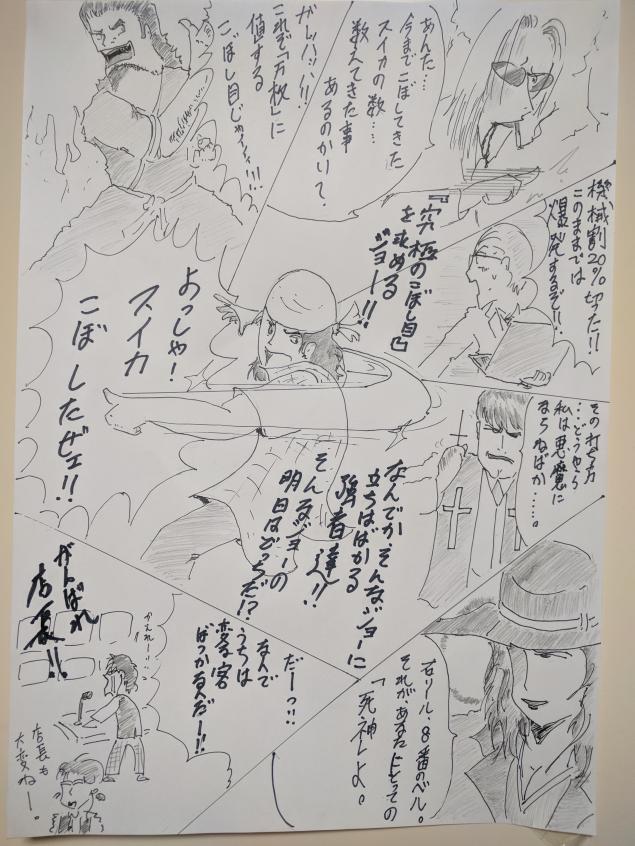 あんた…
今までこぼしてきた
スイカの数…
数えてきた事
あるのかいて？
ガハハッ!!
これぞ「万枚」に
値する
こぼし目じゃァィァ!!!
機械割20%切った!!
このままでは
爆発するぞ!!
『究極のこぼし目』
を求める
ジョー!!
よっしゃ!
スイカ
こぼしたぜェ!!
その打ち方
…どうやら
私は悪魔に
ならねばか……。
なんでか、そんなジョーに
立ちはばかる
強者達!!
そんなジョーの
明日はどっちだ!?
右リール、8番のベル。
それが、あなたにとっての
「死神」よ。
だーっ!!
なんで
うちは
変な客
ばっかなんだー!!
がんばれ
店長!!
かえれー!!
店長も
大変ねー。